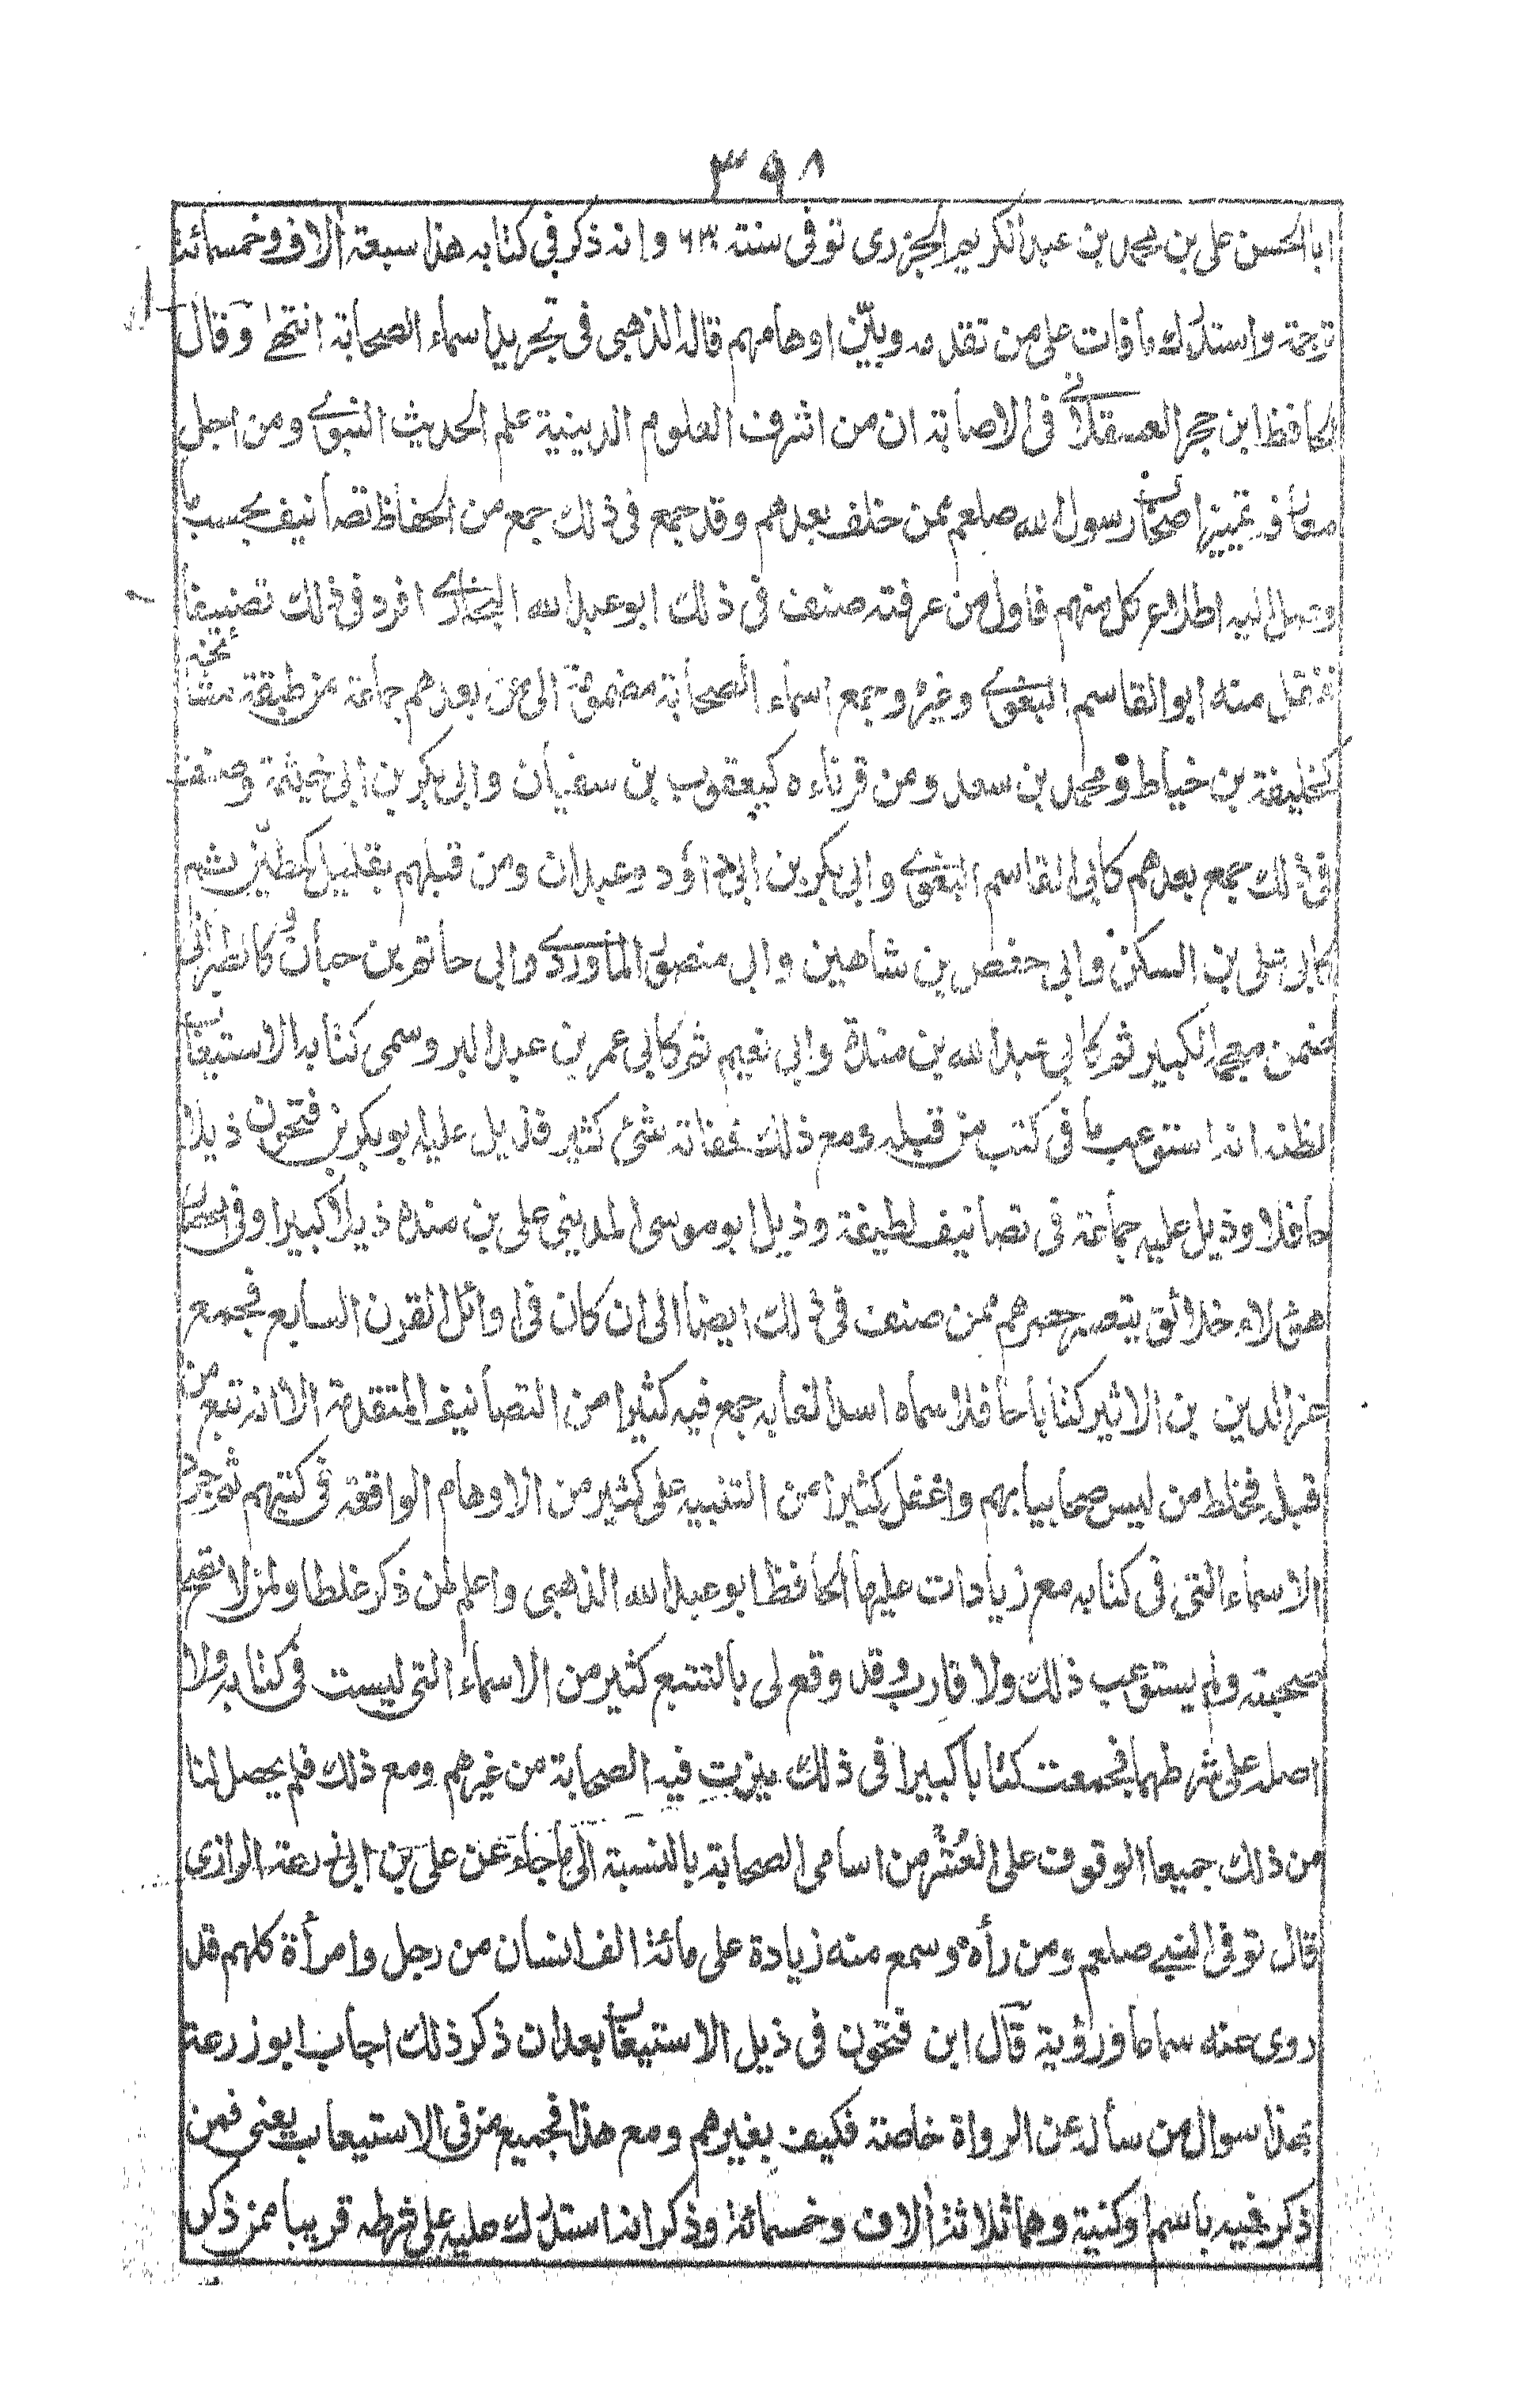 ٣٩٨
ابا الحسن على بن محمد بن عبد الكريم الجزرى توفى سنته ٦٣٠ وانه ذكر فى كتابه هذا سبعة ألاف وخمسمائة
ترجمة واستدرك ما فات على من تقدمه وبيّن اوهامهم قاله الذهبى فى تجريد اسماء الصحابة انتهى وقال
الحافظ ابن حجر العسقلانى فى الاصابة ان من اشرف العلوم الدينية علم الحديث النبوى ومن اجل
معارفه تمييز اصحاب رسول الله صلعم ممن خلف بعدهم وقد جمع فى ذلك جمع من الحفاظ تصانيف بحسب ما
وصل اليه اطلاع كل منهم فاول من عرفته صنف فى ذلك ابو عبد الله البخارى افرد فى ذلك تصنيفا
فنقل منه ابو القاسم البغوى وغيره وجمع اسماء الصحابة مضموما الى من بعدهم جماعة من طبقة مشائخه
كخليفة بن خياط ومحمد بن سعد ومن قرناءه كيعقوب بن سفيان وابى بكر بن ابى خيثمة وصنف
فى ذلك جمع بعدهم كابى القاسم البغوى وابى بكر بن ابى داؤد وعبدان ومن قبلهم بقليل كمطيّن ثم
كابى على بن السكن وابى حفص بن شاهين وابى منصور الماوردى وابى حاتم بن حبان وكالطبرانى
ضمن معجم الكبير ثم كابى عبد الله بن مندة وابى نعيم ثم كابى عمر بن عبد البر وسمى كتابه الاستيعاب
لظنه انه استوعب ما فى كتب من قبله ومع ذلك ففاته شئ كثير فذيل عليه بو بكر بن فتحون ذيلا
حافلا وذيل عليه جماعة فى تصانيف لطيفة وذيل ابو موسى المدينى على بن مندة ذيلا كبيرا وفى اعصار
هؤلاء خلائق يتعسر حصرهم ممن صنف فى ذلك ايضا الى ان كان فى اوائل القرن السابع فجمع
عز الدين بن الاثير كتابا حافلا سماه اسد الغابه جمع فيه كثيرا من التصانيف المتقدمة الا انه تبع من
قبله فخلط من ليس صحابيا بهم واغفل كثيرا من التنبيه على كثير من الاوهام الواقعة فى كتبهم ثم جرد
الاسماء التى فى كتابه مع زيادات عليها الحافظ ابو عبد الله الذهبى واعلم لمن ذكر غلطا ولمن لا تصح
صحبته ولم يستوعب ذلك ولا قارب وقد وقع لى بالتتبع كثير من الاسماء التى ليست فى كتابه ولا
اصله على شرطهما فجمعت كتابا كبيرا فى ذلك ميزت فيه الصحابة من غيرهم ومع ذلك فلم يحصل لنا
من ذلك جميعا الوقوف على العُشر من اسامى الصحابة بالنسبة الى ما جاء عن على بن ابى زرعة الرازى
قال توفى النبى صلعم ومن رأه وسمع منه زيادة على مائة الف انسان من رجل وامرأة كلهم قد
روى عنه سماعا ورؤية قال ابن فتحون فى ذيل الاستيعاب بعد ان ذكر ذلك اجاب ابو زرعة
بهذا سوال من سأله عن الرواة خاصة فكيف بغيرهم ومع هذا فجميع من فى الاستيعاب يعنى فمن
ذكر فيه باسم او كنية وهما ثلاثة ألاف وخمسمائة وذكر انه استدرك عليه على شرطه قريبا ممن ذكر